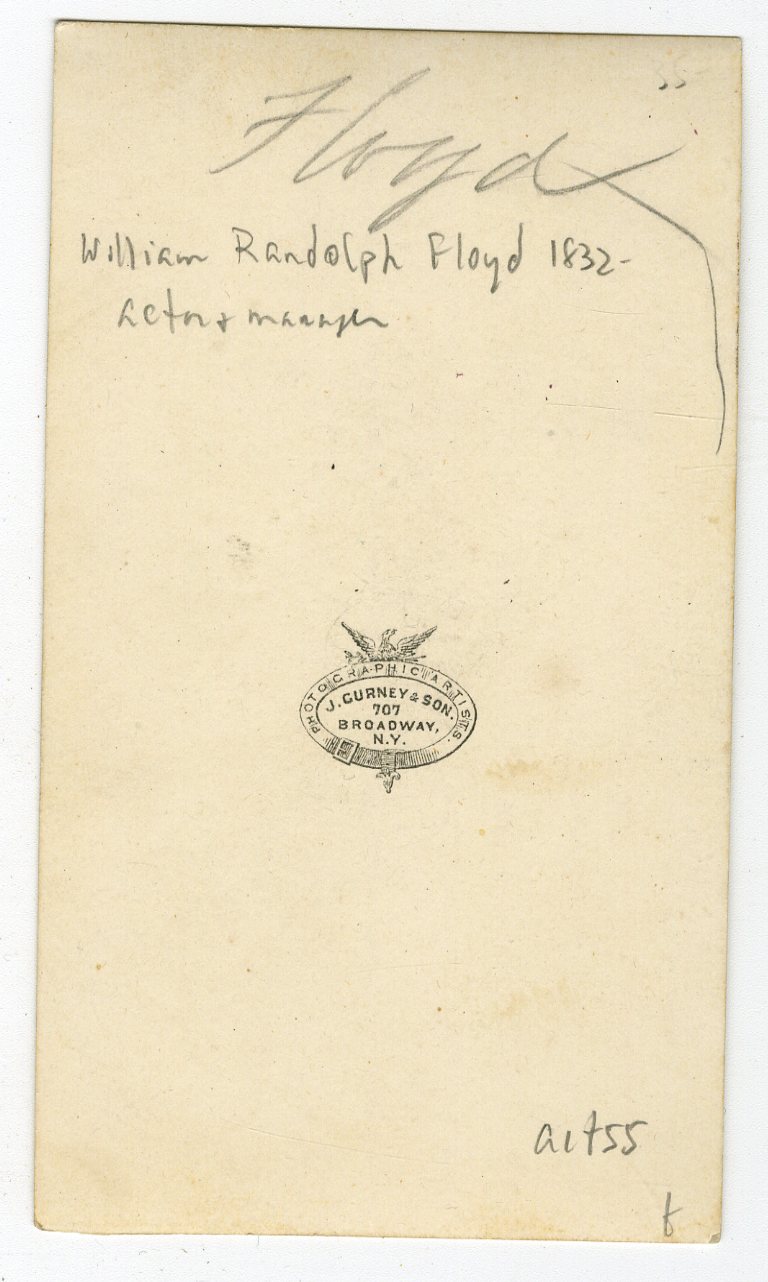 55
Floyd
William Randolph Floyd 1832-
actor & manager
PHOTOGRAPHIC ARTISTS.
J. GURNEY & SON.
707
BROADWAY,
N.Y.
act55
f